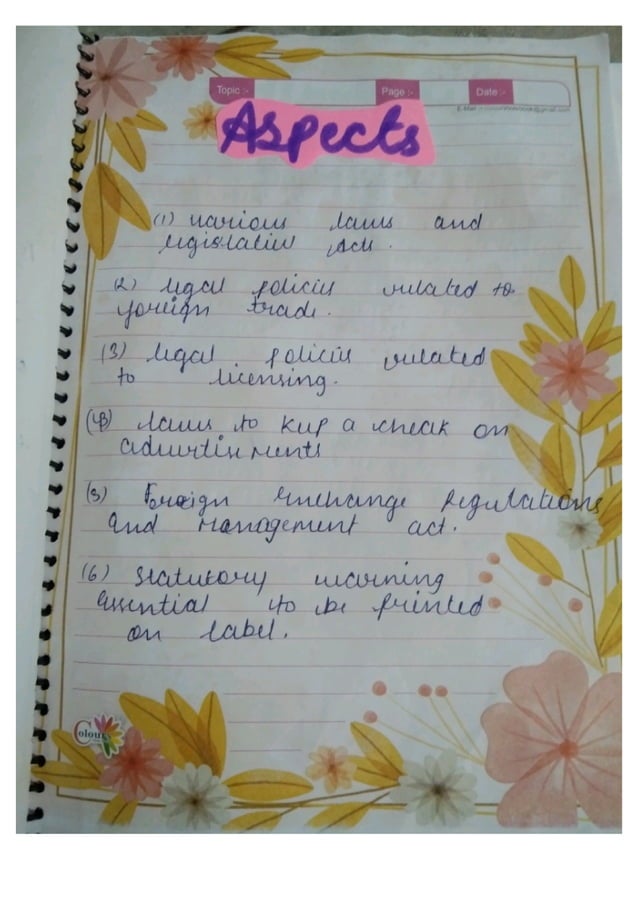 Topic :-
Page :-
Date :-
Aspects
(1) various laws and
legislative Acts.
(2) legal policies related to
foreign trade.
(3) legal policies related
to licensing.
(4) laws to keep a check on
advertisements
(5) Foreign Exchange Regulations
and Management act.
(6) Statutory warning
essential to be printed
on label.
Colours